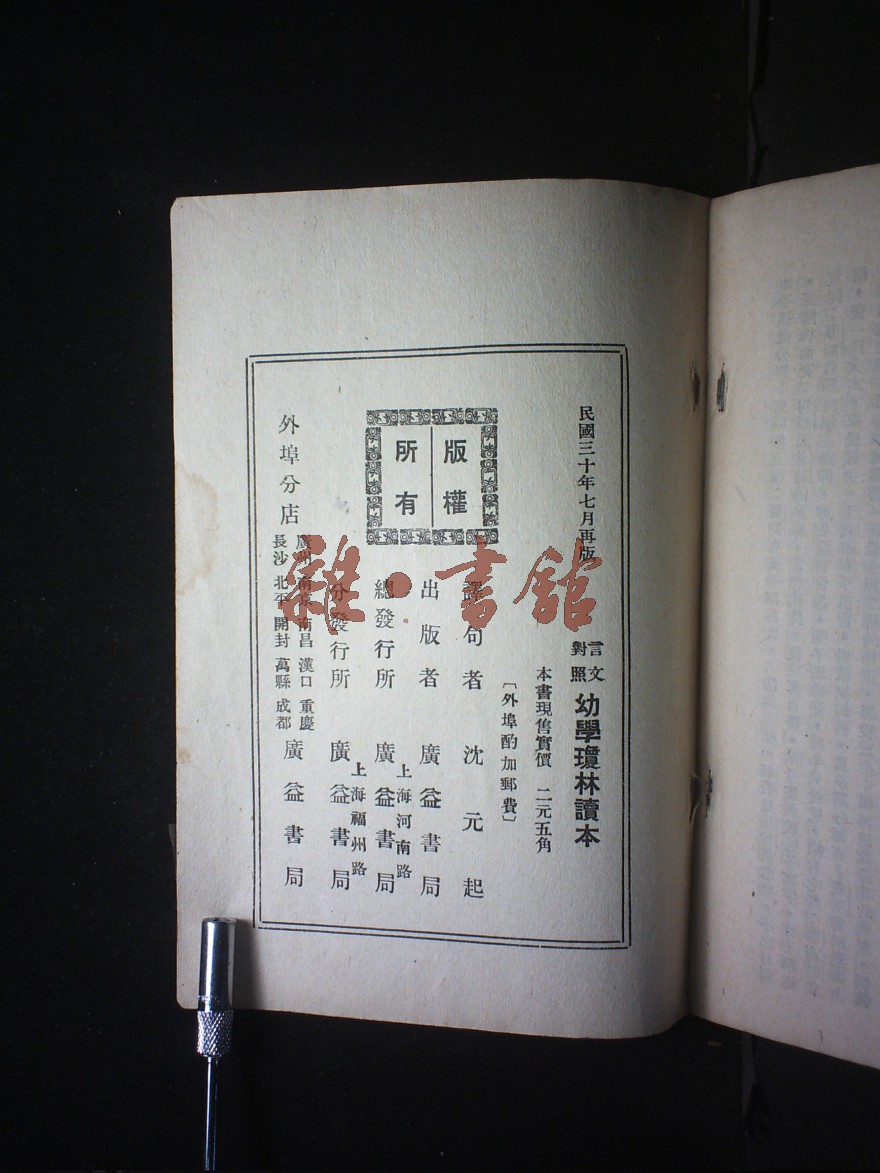 民國三十年七月再版
言文
對照
幼學瓊林讀本
本書現售實價 二元五角
〔外埠酌加郵費〕
版權
所有
譯句者 沈元起
出版者 廣益書局
總發行所 上海河南路 廣益書局
分發行所 上海福州路 廣益書局
外埠分店
廣州 南京 南昌 漢口 重慶
長沙 北平 開封 萬縣 成都
廣益書局
雜·書館